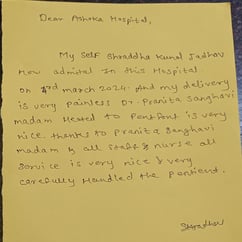 Dear Ashoka Hospital,
My Self Shraddha Kunal Jadhav
Now admital In this Hospital.
On 3rd march 2024. And my delivery
is very painless Dr. Pranita Sanghavi
madam to is very
nice. thanks to Pranita Sanghavi
madam & all staff & nurse all
Service is very nice & very
carefully Handled the
Shraddha